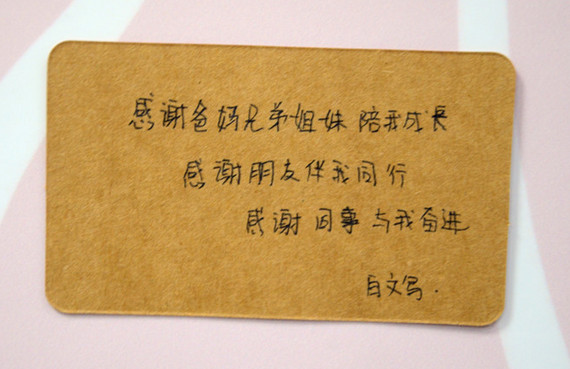 感谢爸妈兄弟姐妹 陪我成長
感谢朋友伴我同行
感谢 同事 与我奋进
自文写.